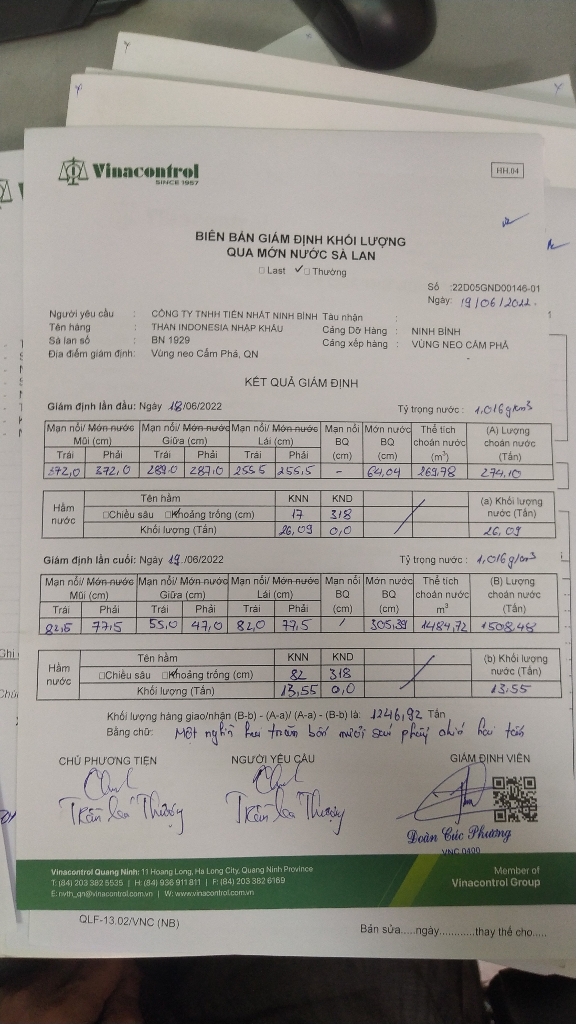 Vinacontrol
SINCE 1957
HH.04
BIÊN BẢN GIÁM ĐỊNH KHỐI LƯỢNG
QUA MỚN NƯỚC SÀ LAN
□ Last ✓□ Thường
Số :22D05GND00146-01
Ngày: 19/06/2022.
Người yêu cầu : CÔNG TY TNHH TIẾN NHẤT NINH BÌNH Tàu nhận :
Tên hàng : THAN INDONESIA NHẬP KHẨU Cảng Dỡ Hàng : NINH BÌNH
Sà lan số : BN 1929 Cảng xếp hàng : VÙNG NEO CẨM PHẢ
Địa điểm giám định: Vùng neo Cẩm Phả, QN
KẾT QUẢ GIÁM ĐỊNH
Giám định lần đầu: Ngày 18/06/2022 Tỷ trọng nước : 1,016g/cm3
Mạn nổi/ Mớn nước Mạn nổi/ Mớn nước Mạn nổi/ Mớn nước Mạn nổi Mớn nước Thể tích (A) Lượng
Mũi (cm) Giữa (cm) Lái (cm) BQ BQ choán nước choán nước
Trái Phải Trái Phải Trái Phải (cm) (cm) (m³) (Tấn)
372,0 372,0 289,0 287,0 255,5 255,5 - 64,04 269,78 274,10
Hầm nước Tên hầm KNN KND (a) Khối lượng nước (Tấn)
□Chiều sâu □Khoảng trống (cm) 17 318
Khối lượng (Tấn) 26,09 0,0 26,09
Giám định lần cuối: Ngày 19/06/2022 Tỷ trọng nước : 1,016g/cm3
Mạn nổi/ Mớn nước Mạn nổi/ Mớn nước Mạn nổi/ Mớn nước Mạn nổi Mớn nước Thể tích (B) Lượng
Mũi (cm) Giữa (cm) Lái (cm) BQ BQ choán nước choán nước
Trái Phải Trái Phải Trái Phải (cm) (cm) m³ (Tấn)
82,5 77,5 55,0 47,0 82,0 77,5 / 305,39 1484,72 1508,48
Hầm nước Tên hầm KNN KND (b) Khối lượng nước (Tấn)
□Chiều sâu □Khoảng trống (cm) 82 318
Khối lượng (Tấn) 13,55 0,0 13,55
Khối lượng hàng giao/nhận (B-b) - (A-a)/ (A-a) - (B-b) là: 1246,92 Tấn
Bằng chữ: Một nghìn hai trăm bốn mươi sáu phẩy chín hai tấn
CHỦ PHƯƠNG TIỆN NGƯỜI YÊU CẦU GIÁM ĐỊNH VIÊN
Đoàn Cúc Phương
VNC 0400
Vinacontrol Quang Ninh: 11 Hoang Long, Ha Long City, Quang Ninh Province
T: (84) 203 382 5535 | H: (84) 936 911 811 | F: (84) 203 382 6169
E: nvth_qn@vinacontrol.com.vn | W: www.vinacontrol.com.vn
Member of
Vinacontrol Group
QLF-13.02/VNC (NB)
Bản sửa.....ngày............thay thế cho.....